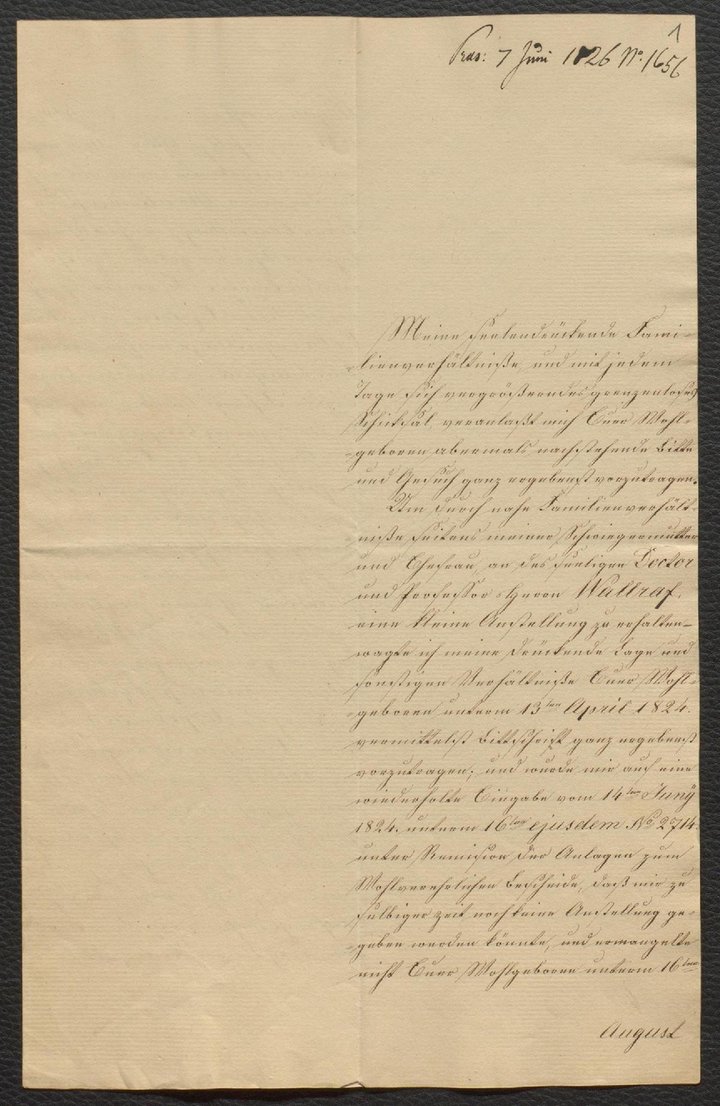 1
Pras: 7 Juni 1826 No. 1656
Meine seelendrückende Fami-
-lienverhältniße, und mit jedem
Tage sich vergrößerndes grenzenloses
Schicksal, veranlaßt mich Euer Wohl-
-geboren abermals nachstehende Bitte
und Gesuch ganz ergebenst vorzutragen.
Um durch nahe Familienverhält-
-niße seitens meiner Schwiegermutter
und Ehefrau, an des seeligen Doctor
und Professors Herrn Wallraf,
eine kleine Anstellung zu erhalten-
wagte ich meine drückende Lage und
sonstigen Verhältniße Euer Wohl-
-geboren unterm 13ten April 1824.
vermittelst Bittschrift ganz ergebenst
vorzutragen; und wurde mir auf eine
wiederholte Eingabe vom 14ten Juny
1824. unterm 16ten ejusdem No 2714.
unter Remission der Anlagen zum
Wohlverehrlichen Bescheide, daß mir zu
selbiger Zeit noch keine Anstellung ge-
-geben werden könnte, und ermangelte
nicht Euer Wohlgeboren unterm 16ten
August